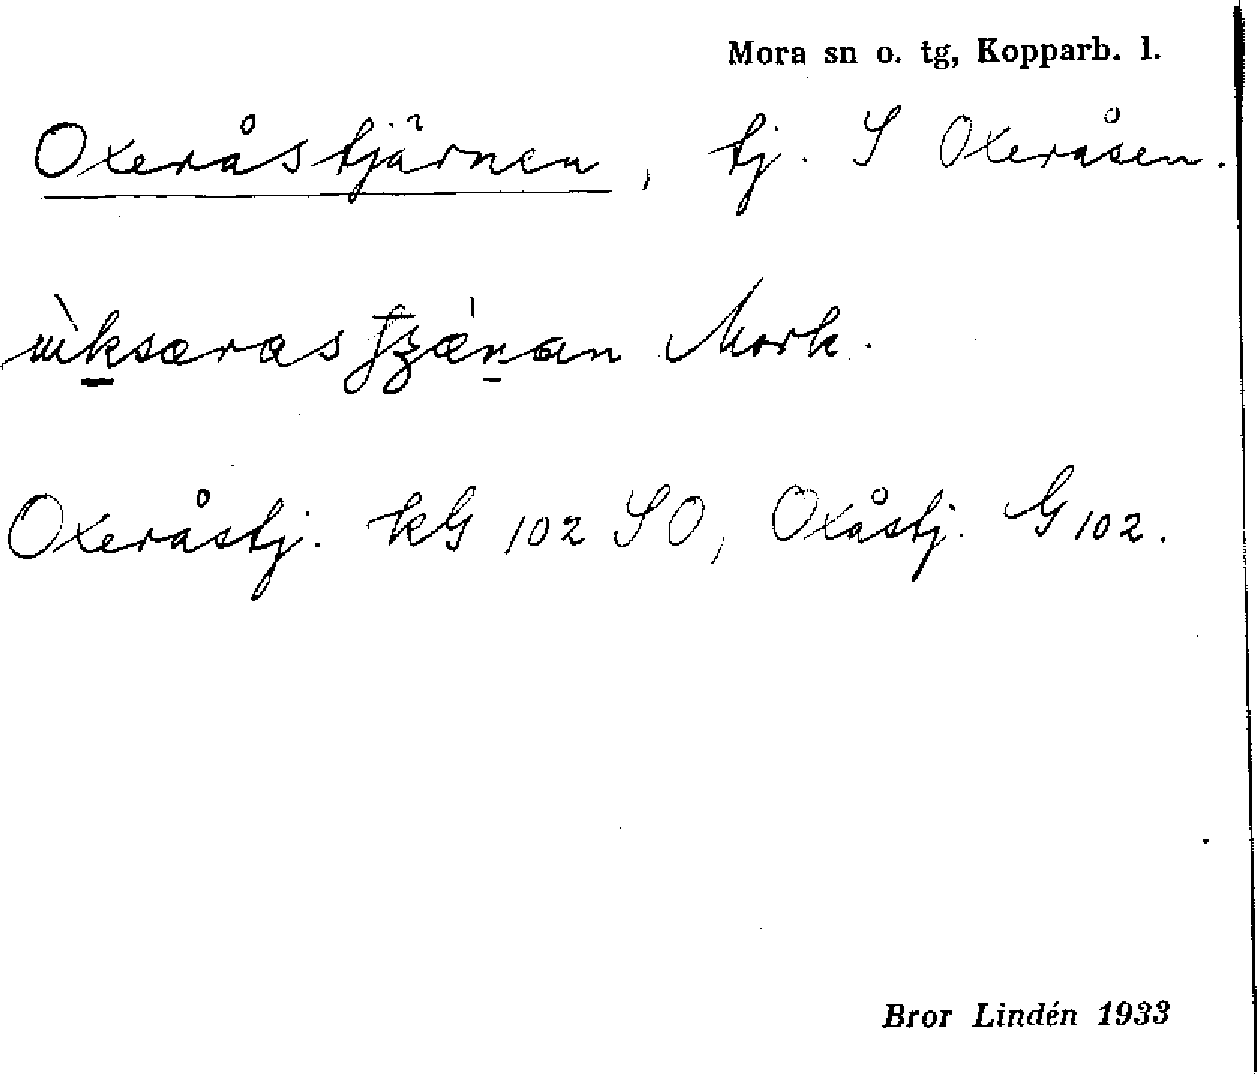 Mora sn o. tg, Kopparb. l.
Oxeråstjärnen, tj. S Oxeråsen.
Mork.
Oxeråstj. kG 102 SO, Oxåstj. G 102.
Bror Lindén 1933